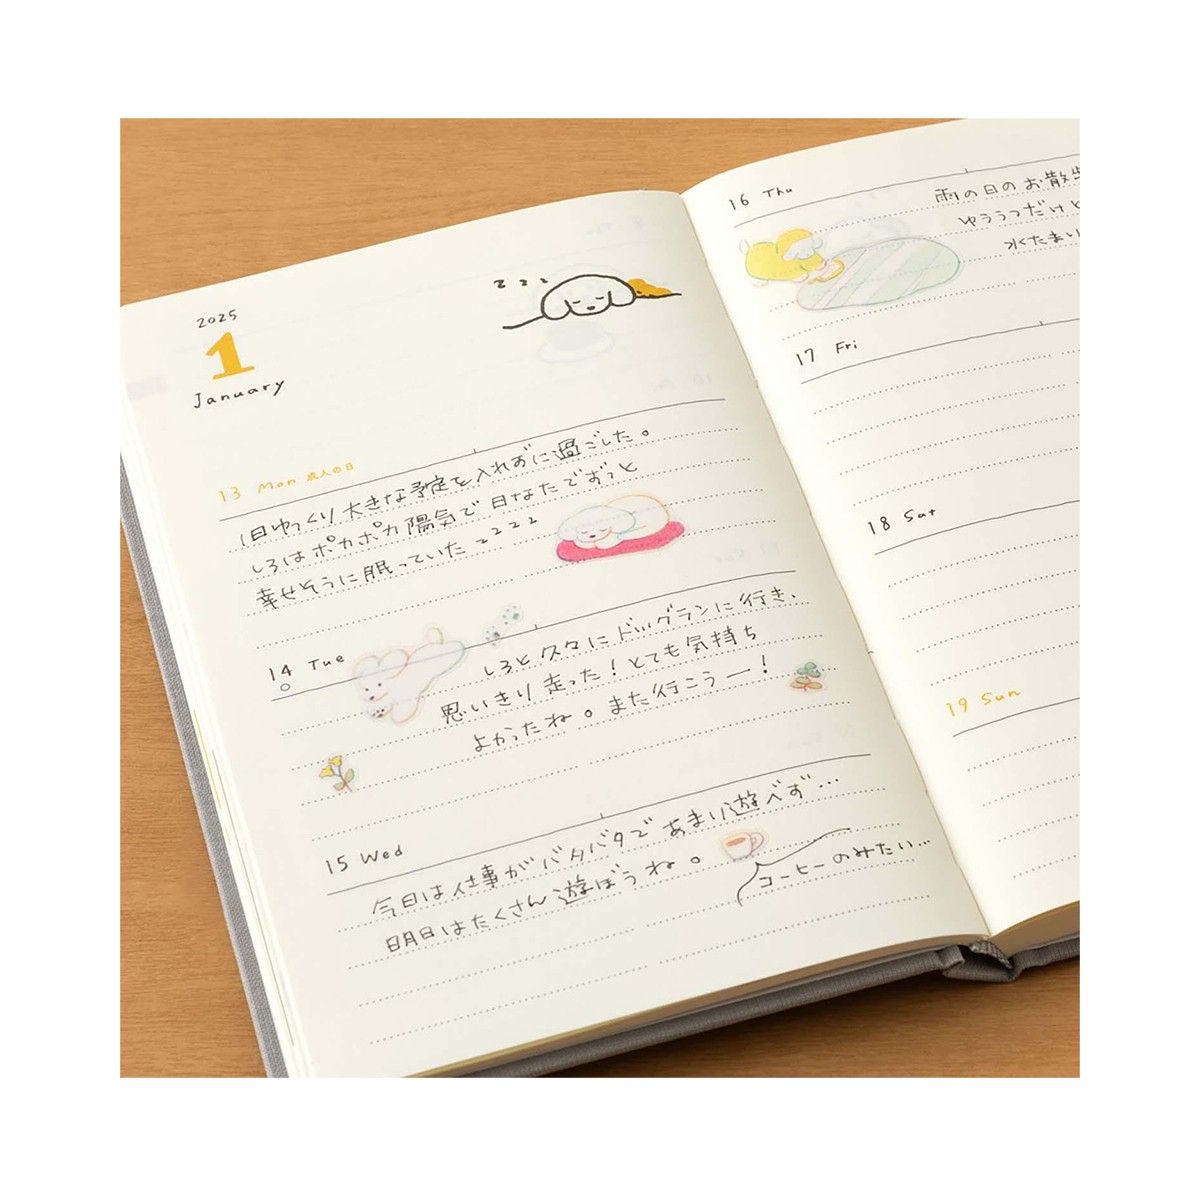 2025
1
January
z z z
13 Mon 成人の日
1日ゆっくり大きな予定を入れずに過ごした。
しろはポカポカ陽気で日なたでずっと
幸せそうに眠っていた zzz
14 Tue
しろと久々にドッグランに行き、
思いきり走った!とても気持ち
よかったね。また行こうー!
15 Wed
今日は仕事がバタバタであまり遊べず…
明日はたくさん遊ぼうね。
コーヒーのみたい…
16 Thu
雨の日のお散歩
ゆううつだけと
水たまり
17 Fri
18 Sat
19 Sun